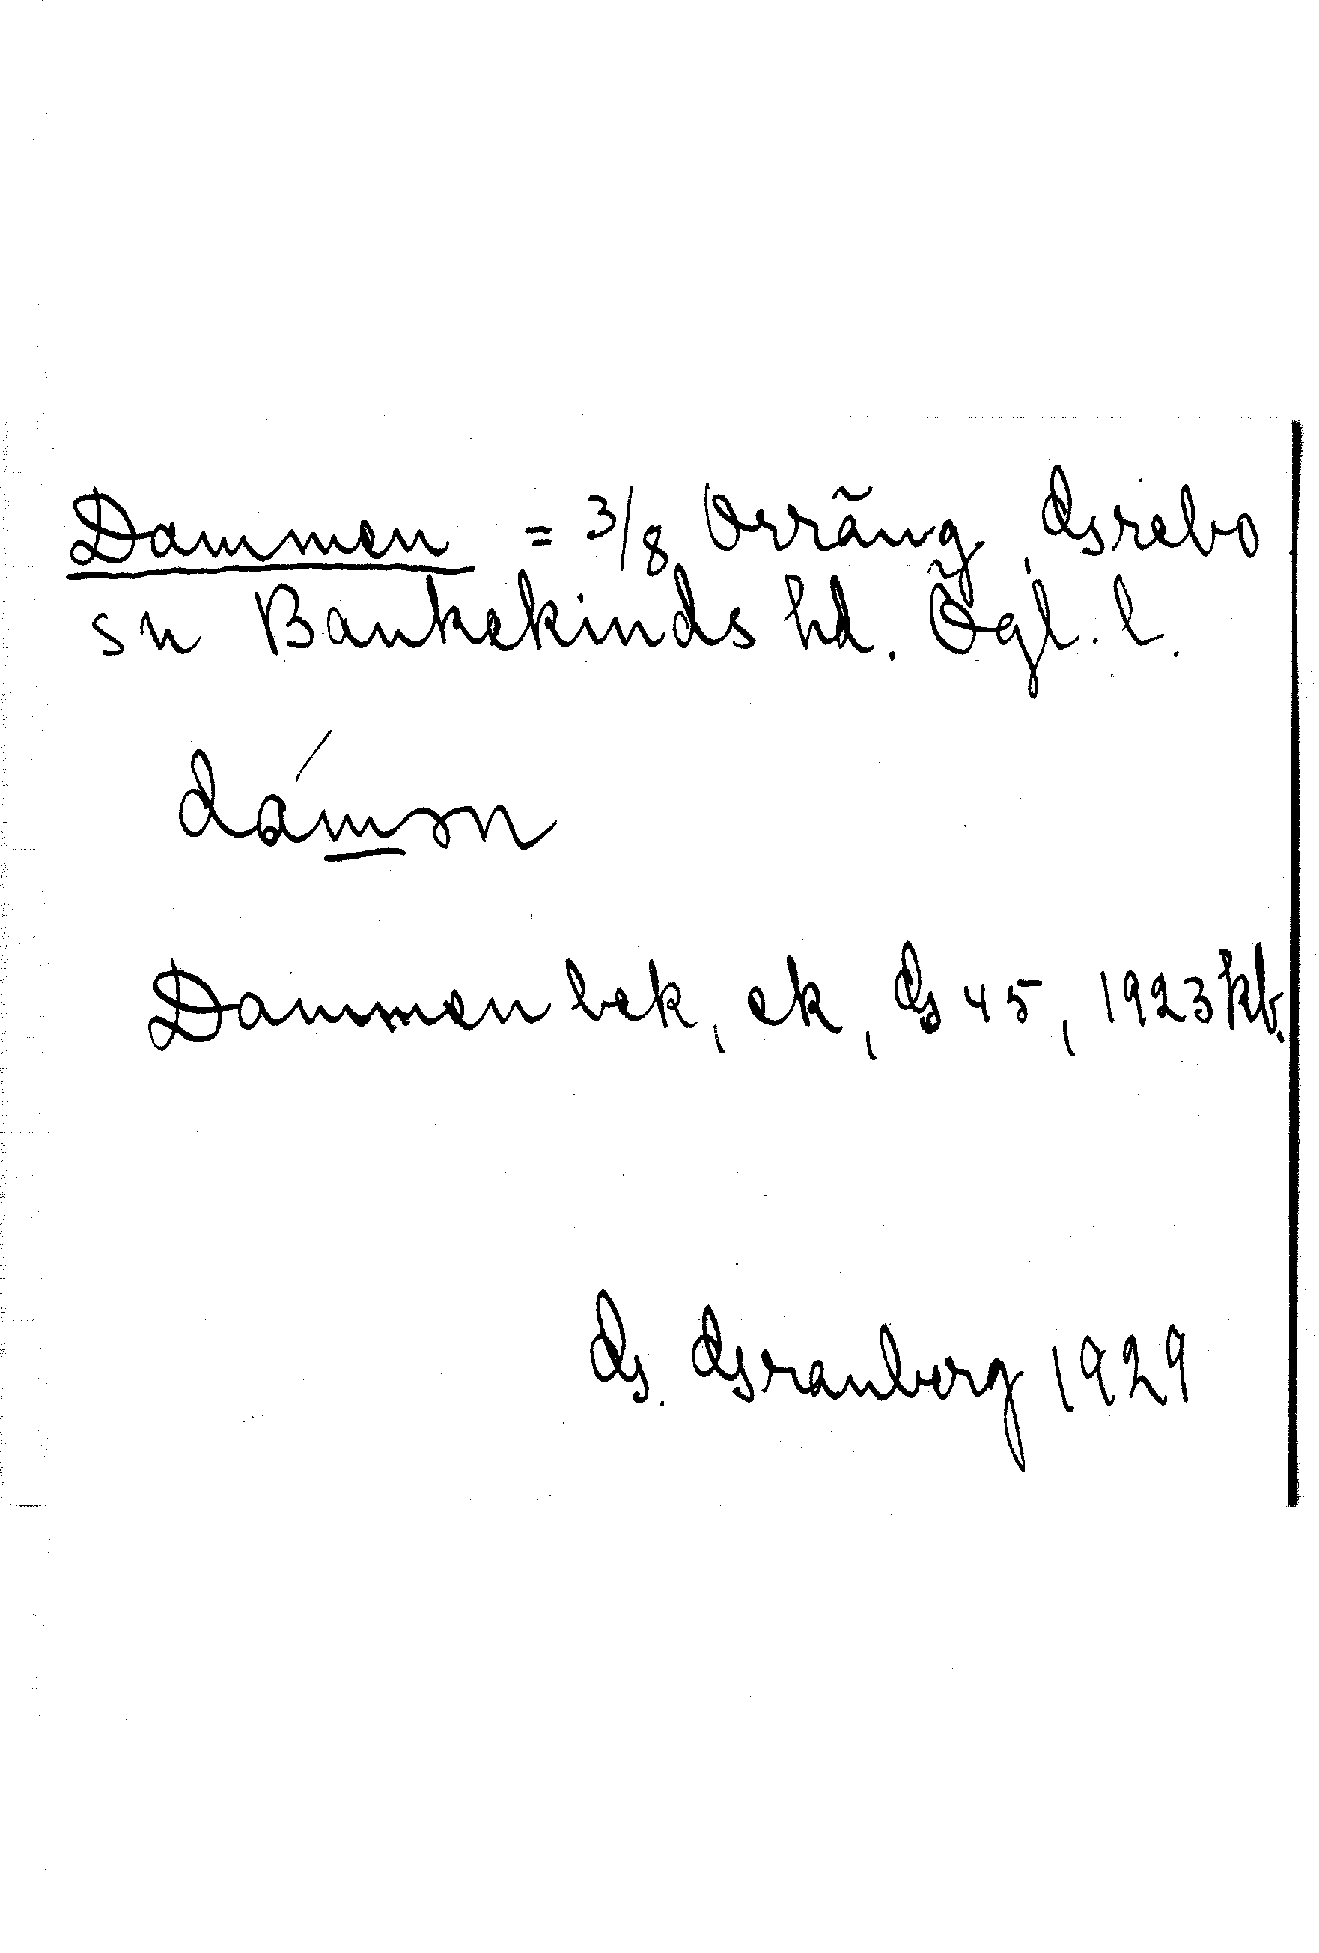 Dammen = 3/8 Orräng, Grebo
sn Bankekinds hd. Ögl. l.
dámən
Dammen bek, ek, G 45, 1923 kb.
G. Granberg 1929